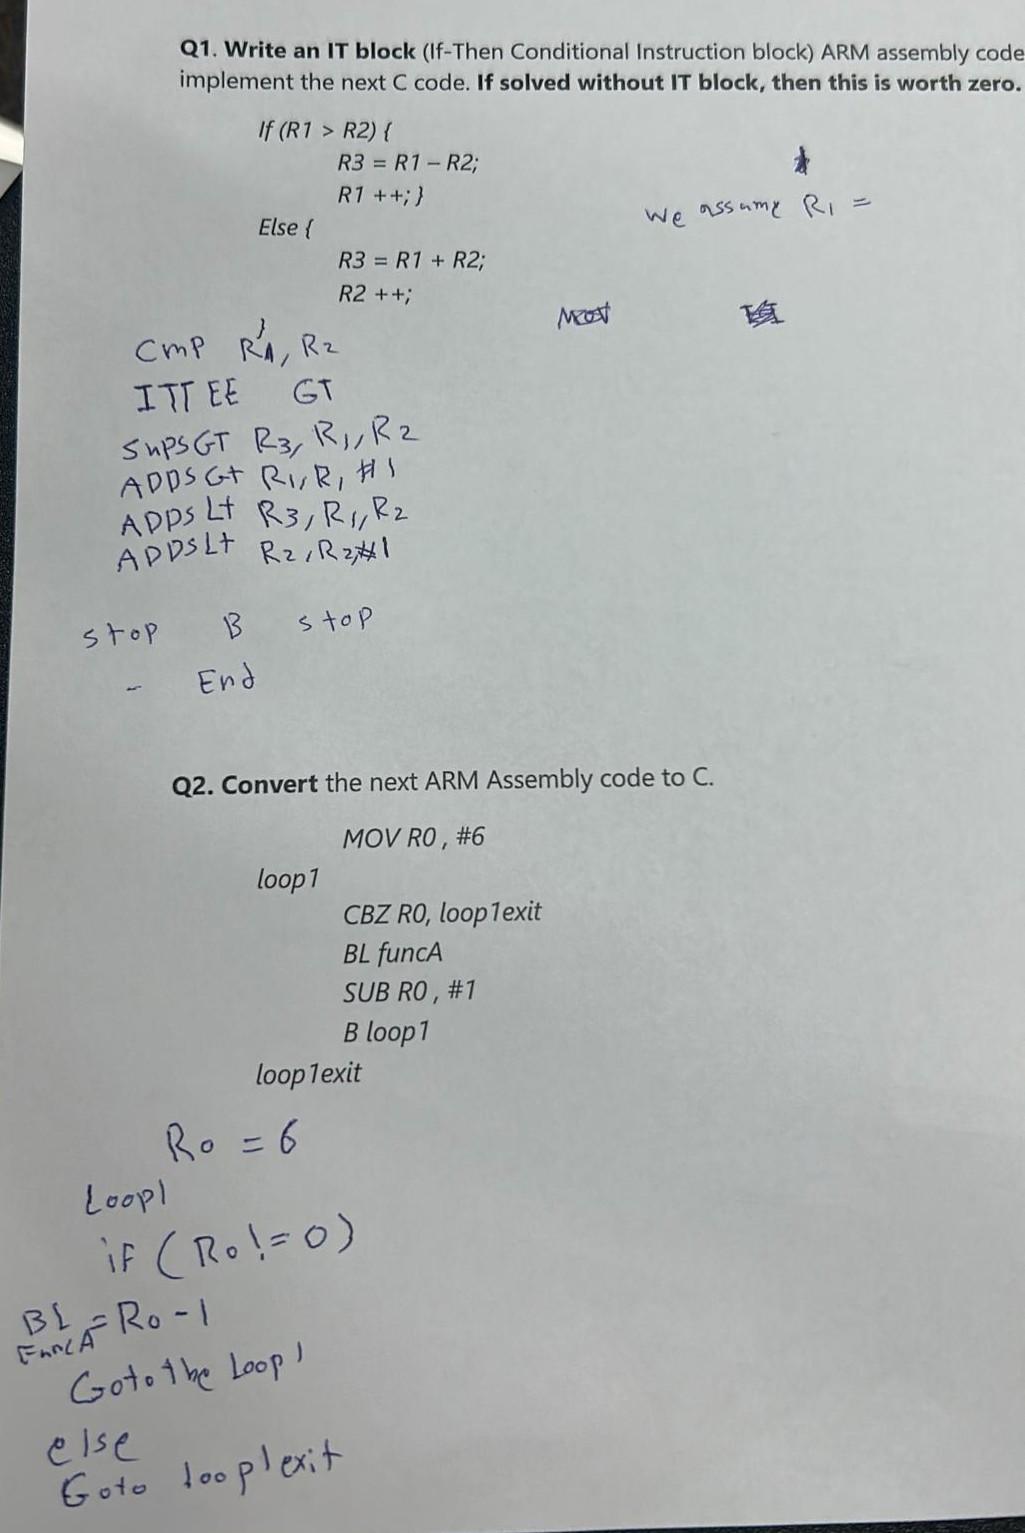 Q1. Write an IT block (If-Then Conditional Instruction block) ARM assembly code
implement the next C code. If solved without IT block, then this is worth zero.
If (R1 > R2) {
R3 = R1 – R2;
R1 ++; }
We assume R1 =
Else {
R3 = R1 + R2;
R2 ++;
}
CMP R1, R2
ITTEE GT
SUBSGT R3, R1, R2
ADDSGt R1, R1 #1
ADDSLt R3, R1, R2
ADDSLt R2, R2, #1
stop B stop
- End
Q2. Convert the next ARM Assembly code to C.
MOV R0 , #6
loop1
CBZ R0, loop1exit
BL funcA
SUB R0 , #1
B loop1
loop1exit
R0 = 6
Loop1
if (R0 != 0)
BL = R0 - 1
FuncA
Goto the Loop1
else
Goto loop1exit